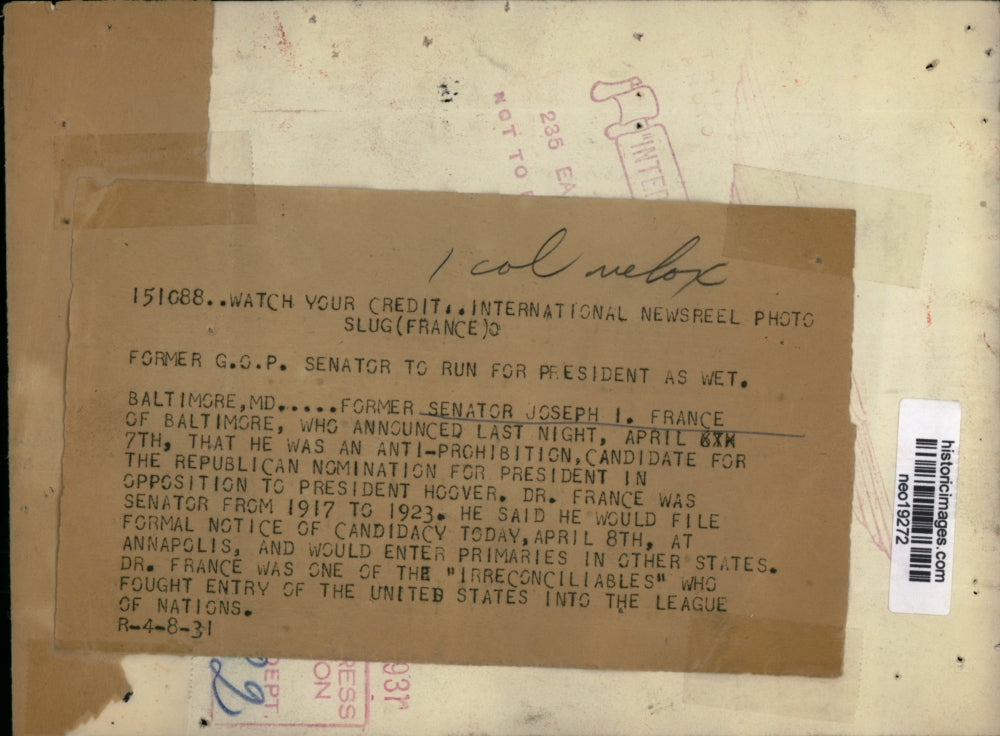 "INTER
235 EA
NOT TO
1 col velox
151088..WATCH YOUR CREDIT...INTERNATIONAL NEWSREEL PHOTO
SLUG(FRANCE)
FORMER G.O.P. SENATOR TO RUN FOR PRESIDENT AS WET.
BALTIMORE,MD.....FORMER SENATOR JOSEPH I. FRANCE
OF BALTIMORE, WHO ANNOUNCED LAST NIGHT, APRIL
7TH, THAT HE WAS AN ANTI-PROHIBITION,CANDIDATE FOR
THE REPUBLICAN NOMINATION FOR PRESIDENT IN
OPPOSITION TO PRESIDENT HOOVER. DR. FRANCE WAS
SENATOR FROM 1917 TO 1923. HE SAID HE WOULD FILE
FORMAL NOTICE OF CANDIDACY TODAY,APRIL 8TH, AT
ANNAPOLIS, AND WOULD ENTER PRIMARIES IN OTHER STATES.
DR. FRANCE WAS ONE OF THE "IRRECONCILIABLES" WHO
FOUGHT ENTRY OF THE UNITED STATES INTO THE LEAGUE
OF NATIONS.
R-4-8-31
historicimages.com
neo19272
931
RESS
ON
DEPT.
2